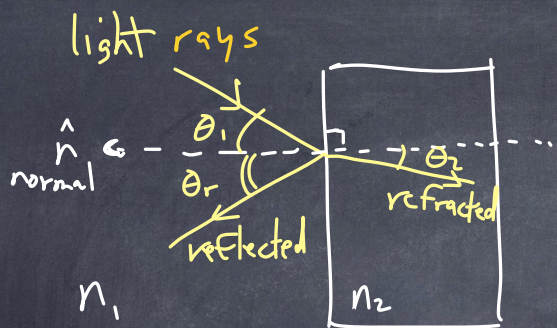 light rays
n̂
normal
θ₁
θr
θ₂
refracted
reflected
n₁
n₂